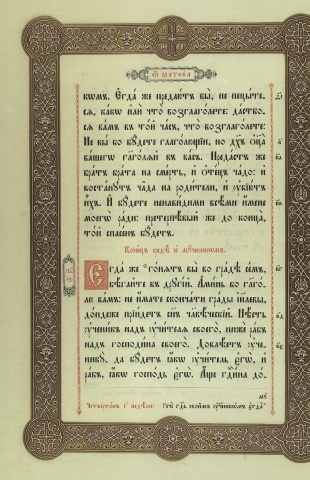 Ѿ матѳеа
комъ. Єгда же предаютъ вы, не пецыте-
сѧ, какѡ и҆лѝ что̀ возглаголете: дастьбо-
сѧ вамъ въ то́й часъ, что̀ возглаголете:
Не вы бо бꙋдете глаголющїи, но дх҃ъ ѻ҆ц҃а̀
вашегѡ глаголѧй въ васъ. Предастъ же
братъ брата на смерть, и҆ ѻ҆тецъ чадо: и҆
востанꙋтъ чада на родители, и҆ ᲂу҆бїютъ
и҆̀хъ. И҆ бꙋдете ненавидими всѣми и҆мене
моегѡ̀ ради: претерпѣвый же до конца,
той спасенъ бꙋдетъ.
Конецъ нд҃ѣ и҆ мч҃никѡмъ.
Єгда же гонѧтъ вы во градѣ семъ,
бѣгайте въ дрꙋгїй. Аминь бо гл҃го-
лю вамъ: не имате скончати грады і҆и҃левы,
дондеже прїидетъ сн҃ъ чл҃вѣческїй. Нѣсть
ᲂу҆ченикъ над̾ ᲂу҆чителѧ своего̀, ниже рабъ
над̾ господина своегѡ. Довлѣетъ ᲂу҆че-
никꙋ, да бꙋдетъ ꙗ҆кѡ ᲂу҆читель є҆гѡ̀, и҆
рабъ, ꙗ҆кѡ господь є҆гѡ̀. Аще господина до-
мꙋ